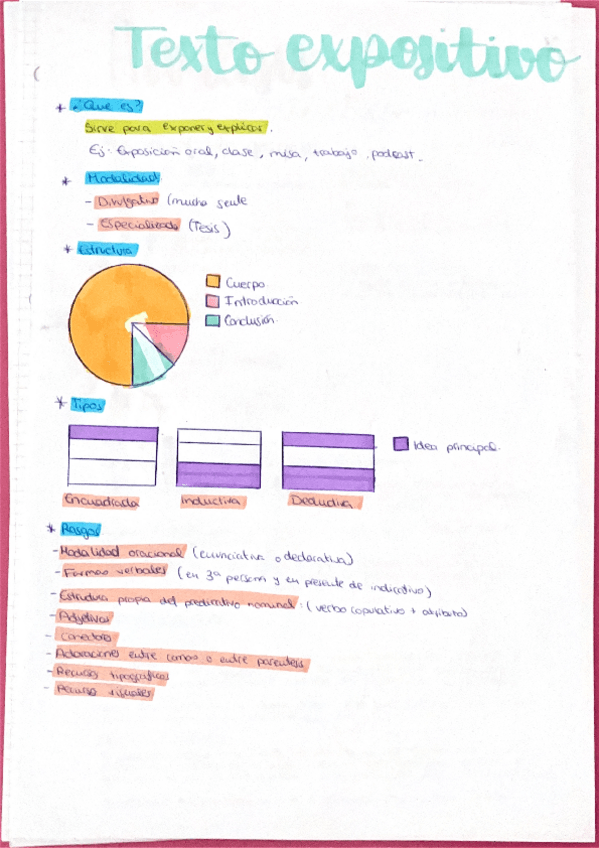 Texto expositivo
* ¿Que es?
Sirve para exponer y explicar.
Ej: Exposición oral, clase, misa, trabajo, podcast.
* Modalidad
- Divulgativo (mucha gente
- Especializado (Tesis)
* Estructura
Cuerpo
Introducción
Conclusión
* Tipos
Idea principal
Encuadrada Inductiva Deductiva
* Rasgos
- Modalidad oracional (enunciativa o declarativa)
- Formas verbales (en 3ª persona y en presente de indicativo)
- Estructura propia del predicativo nominal: (verbo copulativo + atributo)
- Adjetivos
- Conectores
- Aclaraciones entre comas o entre parentesis
- Recursos tipograficos
- Recursos visuales